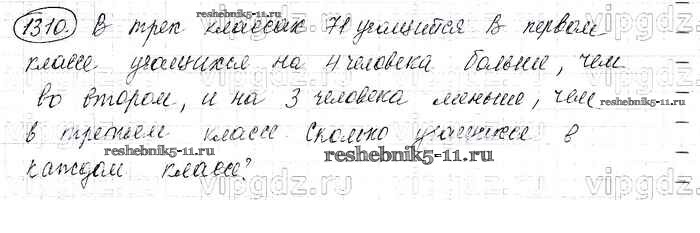 1310. В трех классах 71 учащийся В первом
классе учащихся на 4 человека больше, чем
во втором, и на 3 человека меньше, чем
в третьем классе. Сколько учащихся в
каждом классе?
reshebnik5-11.ru
reshebnik5-11.ru
reshebnik5-11.ru
reshebnik5-11.ru
vipgdz.ru vipgdz.ru vipgdz.ru
vipgdz.ru vipgdz.ru vipgdz.ru